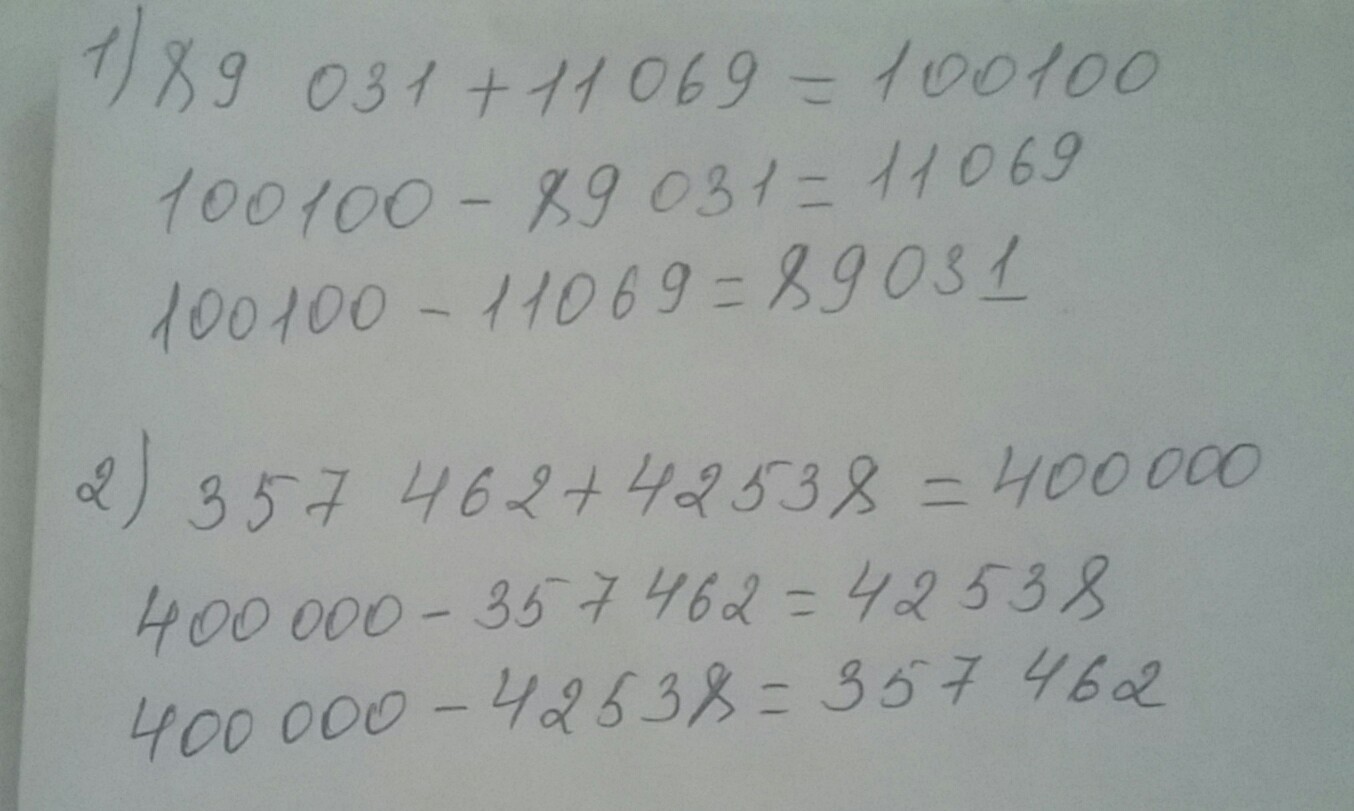 1) 89 031 + 11 069 = 100100
100100 - 89 031 = 11 069
100100 - 11069 = 89031
2) 357 462 + 42538 = 400 000
400 000 - 357 462 = 42 538
400 000 - 42538 = 357 462